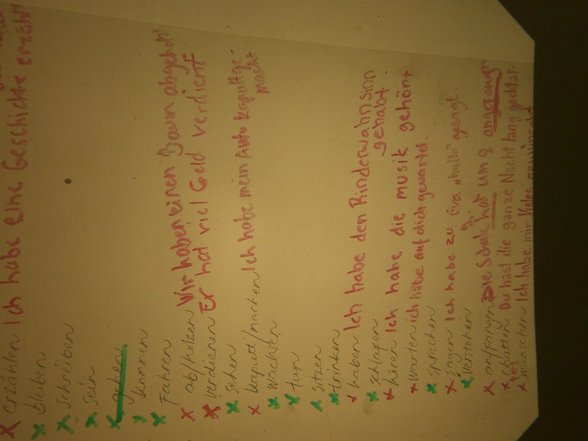 x erzählen Ich habe eine Geschichte erzählt
x bleiben
x schreiben
x sein
x gehen
x kommen
x fahren
x abholzen Wir haben einen Baum abgeholzt
x verdienen Er hat viel Geld verdient
x sehen
x kaputt/machen Ich habe mein Auto kaputtge-
macht
x wachsen
x tun
x sitzen
x trinken
x haben Ich habe den Rinderwahnsinn
gehabt.
x schlafen
x hören ich habe die musik gehört
x warten ich habe auf dich gewartet.
x sprechen
x sagen Ich habe zu Eva "hallo" gesagt.
x verstehen
x anfangen Die Schule hat um 8 angefangen
x Du hast die ganze Nacht lang
x wünschen Ich habe mir